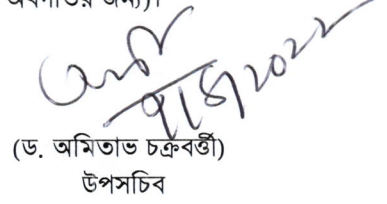 অবগতির জন্য)।
(ড. অমিতাভ চক্রবর্ত্তী)
উপসচিব